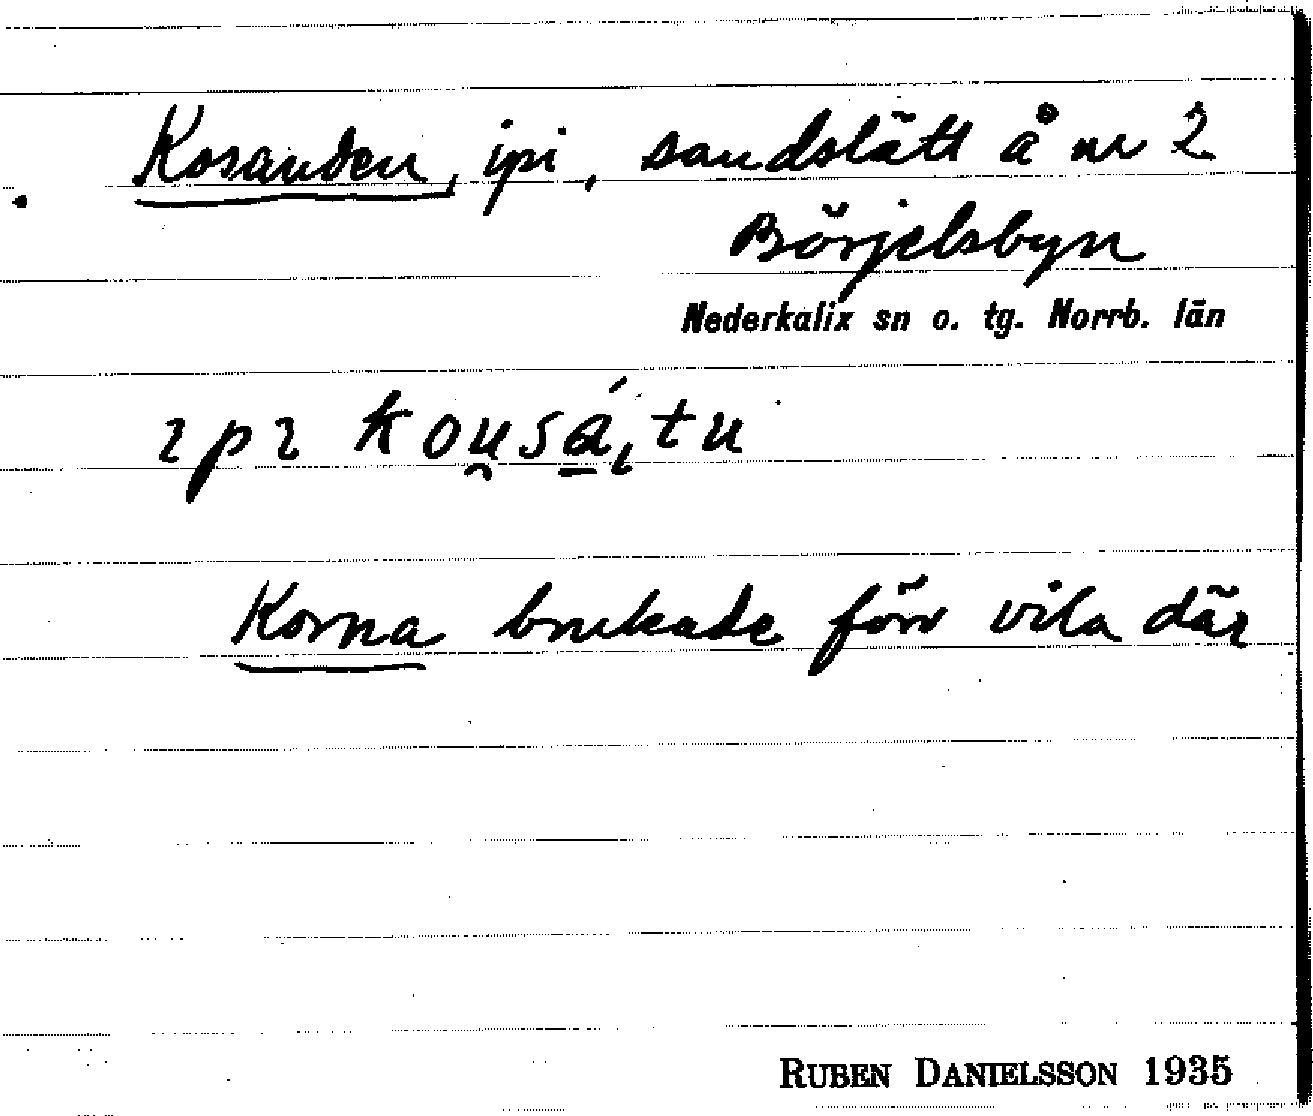 Kosanden, ipi, sandslätt å nr 2
Börjelsbyn
Nederkalix sn o. tg. Norrb. län
ɩpɩ kou̯sá̱ɩtu
Korna brukade förr vila där
RUBEN DANIELSSON 1935